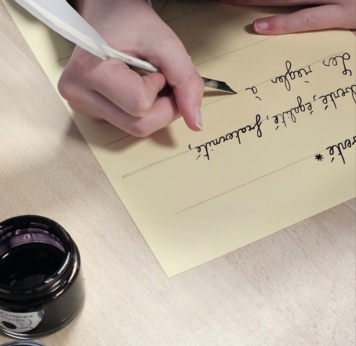 erté *
berté, égalité, fraternité,
Les règles à